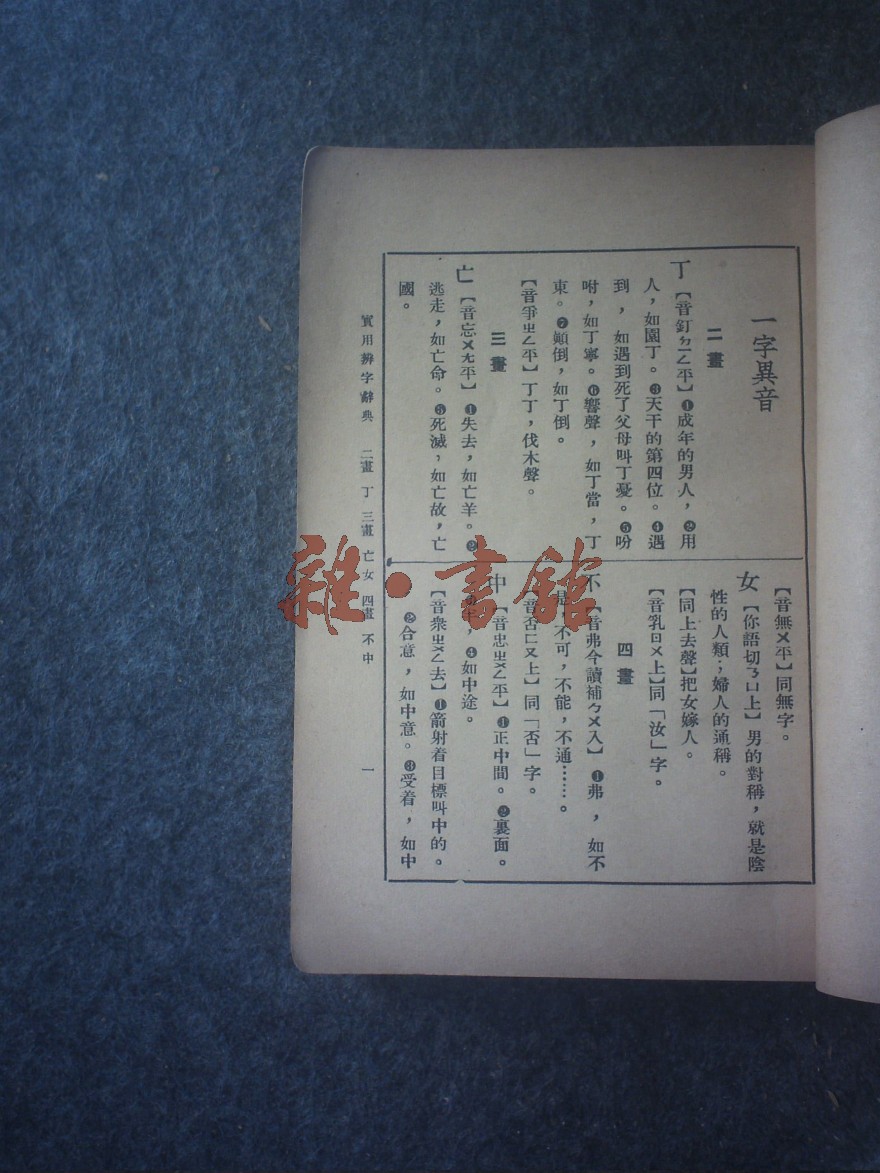 一字異音
二畫
丁【音釘ㄉㄧㄥ平】❶成年的男人，❷用
人，如園丁。❸天干的第四位。❹遇
到，如遇到死了父母叫丁憂。❺吩
咐，如丁寧。❻響聲，如丁當，丁
東。❼顛倒，如丁倒。
【音爭ㄓㄥ平】丁丁，伐木聲。
三畫
亡【音忘ㄨㄤ平】❶失去，如亡羊。❷
逃走，如亡命。❸死滅，如亡故，亡
國。
【音無ㄨ平】同無字。
女【你語切ㄋㄩ上】男的對稱，就是陰
性的人類；婦人的通稱。
【同上去聲】把女嫁人。
【音乳ㄖㄨ上】同「汝」字。
四畫
不【音弗今讀補ㄅㄨ入】❶弗，如不
是，不可，不能，不通……。
【音否ㄈㄡ上】同「否」字。
中【音忠ㄓㄨㄥ平】❶正中間。❷裏面。
❹如中途。
【音衆ㄓㄨㄥ去】❶箭射着目標叫中的。
❷合意，如中意。❸受着，如中
實用辨字辭典 二畫 丁 三畫 亡 女 四畫 不 中 一
雜·書館